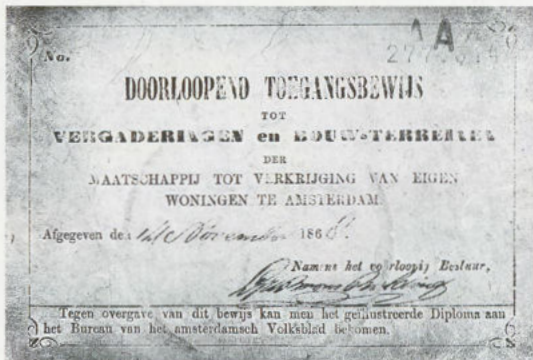 1A
No.
DOORLOOPEND TOEGANGSBEWIJS
TOT
VERGADERINGEN en BOUW-TERREINEN
DER
MAATSCHAPPIJ TOT VERKRIJGING VAN EIGEN
WONINGEN TE AMSTERDAM.
Afgegeven den November 1868
Namens het voorloopig Bestuur,
Tegen overgave van dit bewijs kan men het geïllustreerde Diploma aan
het Bureau van het amsterdamsch Volksblad bekomen.